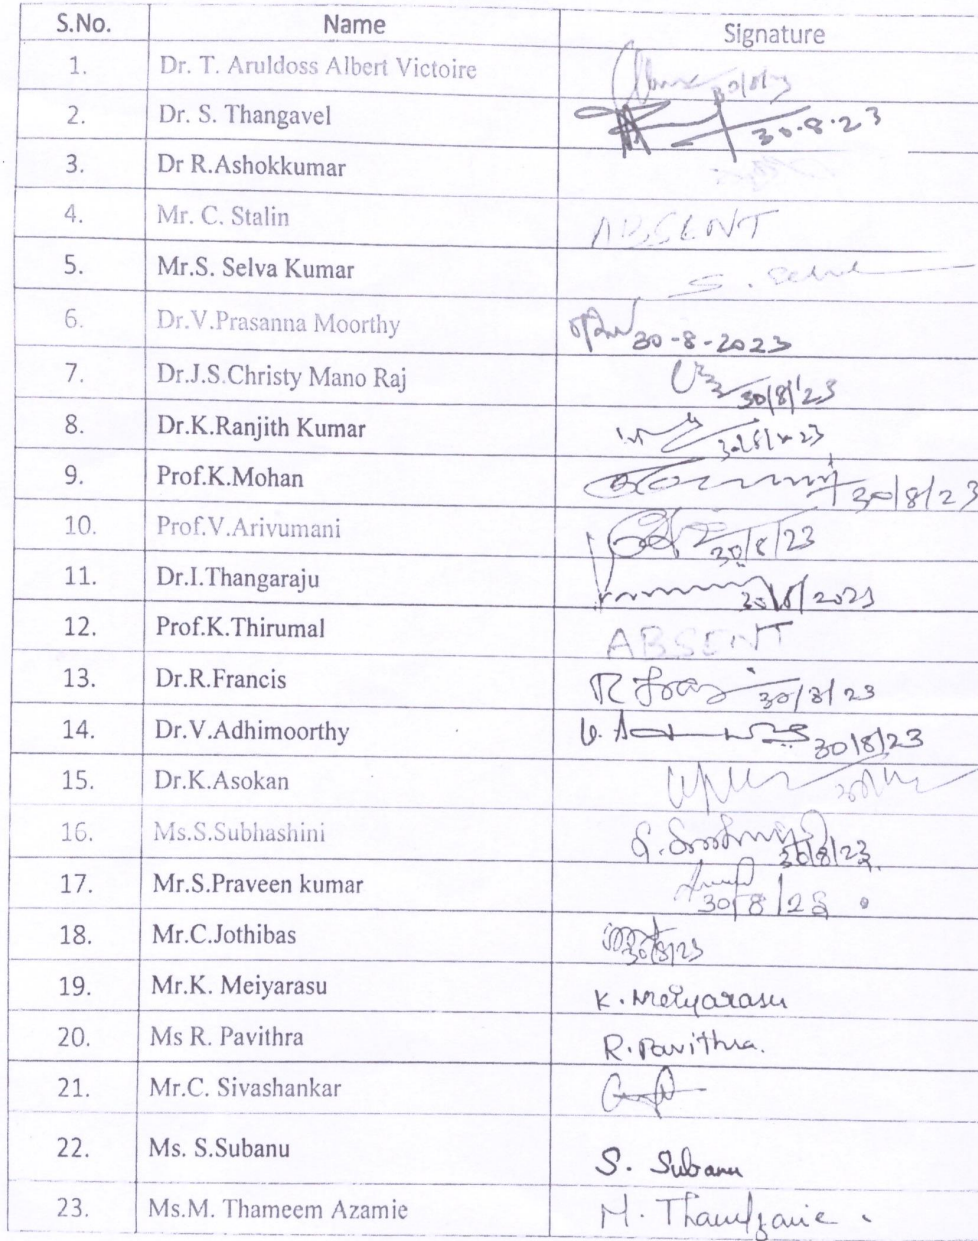 S.No. Name Signature
1. Dr. T. Aruldoss Albert Victoire
2. Dr. S. Thangavel 30.8.23
3. Dr R.Ashokkumar
4. Mr. C. Stalin ABSENT
5. Mr.S. Selva Kumar S.
6. Dr.V.Prasanna Moorthy 30-8-2023
7. Dr.J.S.Christy Mano Raj 30/8/23
8. Dr.K.Ranjith Kumar
9. Prof.K.Mohan 30/8/23
10. Prof.V.Arivumani 30/8/23
11. Dr.I.Thangaraju 30/8/2023
12. Prof.K.Thirumal ABSENT
13. Dr.R.Francis R 30/8/23
14. Dr.V.Adhimoorthy V. 30/8/23
15. Dr.K.Asokan
16. Ms.S.Subhashini S. 30/8/23
17. Mr.S.Praveen kumar 30/8/23
18. Mr.C.Jothibas 30/8/23
19. Mr.K. Meiyarasu K. Meiyarasu
20. Ms R. Pavithra R. Pavithra.
21. Mr.C. Sivashankar
22. Ms. S.Subanu S. Subanu
23. Ms.M. Thameem Azamie M.